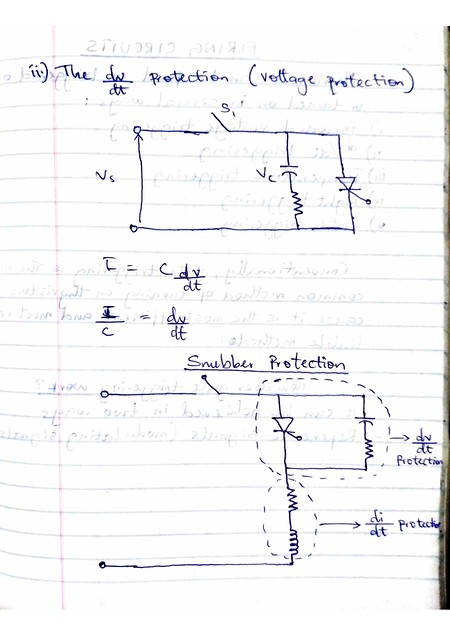 iii) The dv/dt protection (voltage protection)
S1
Vs
Vc
I = C dv/dt
I/C = dv/dt
Snubber Protection
→ dv/dt
Protection
→ di/dt protection